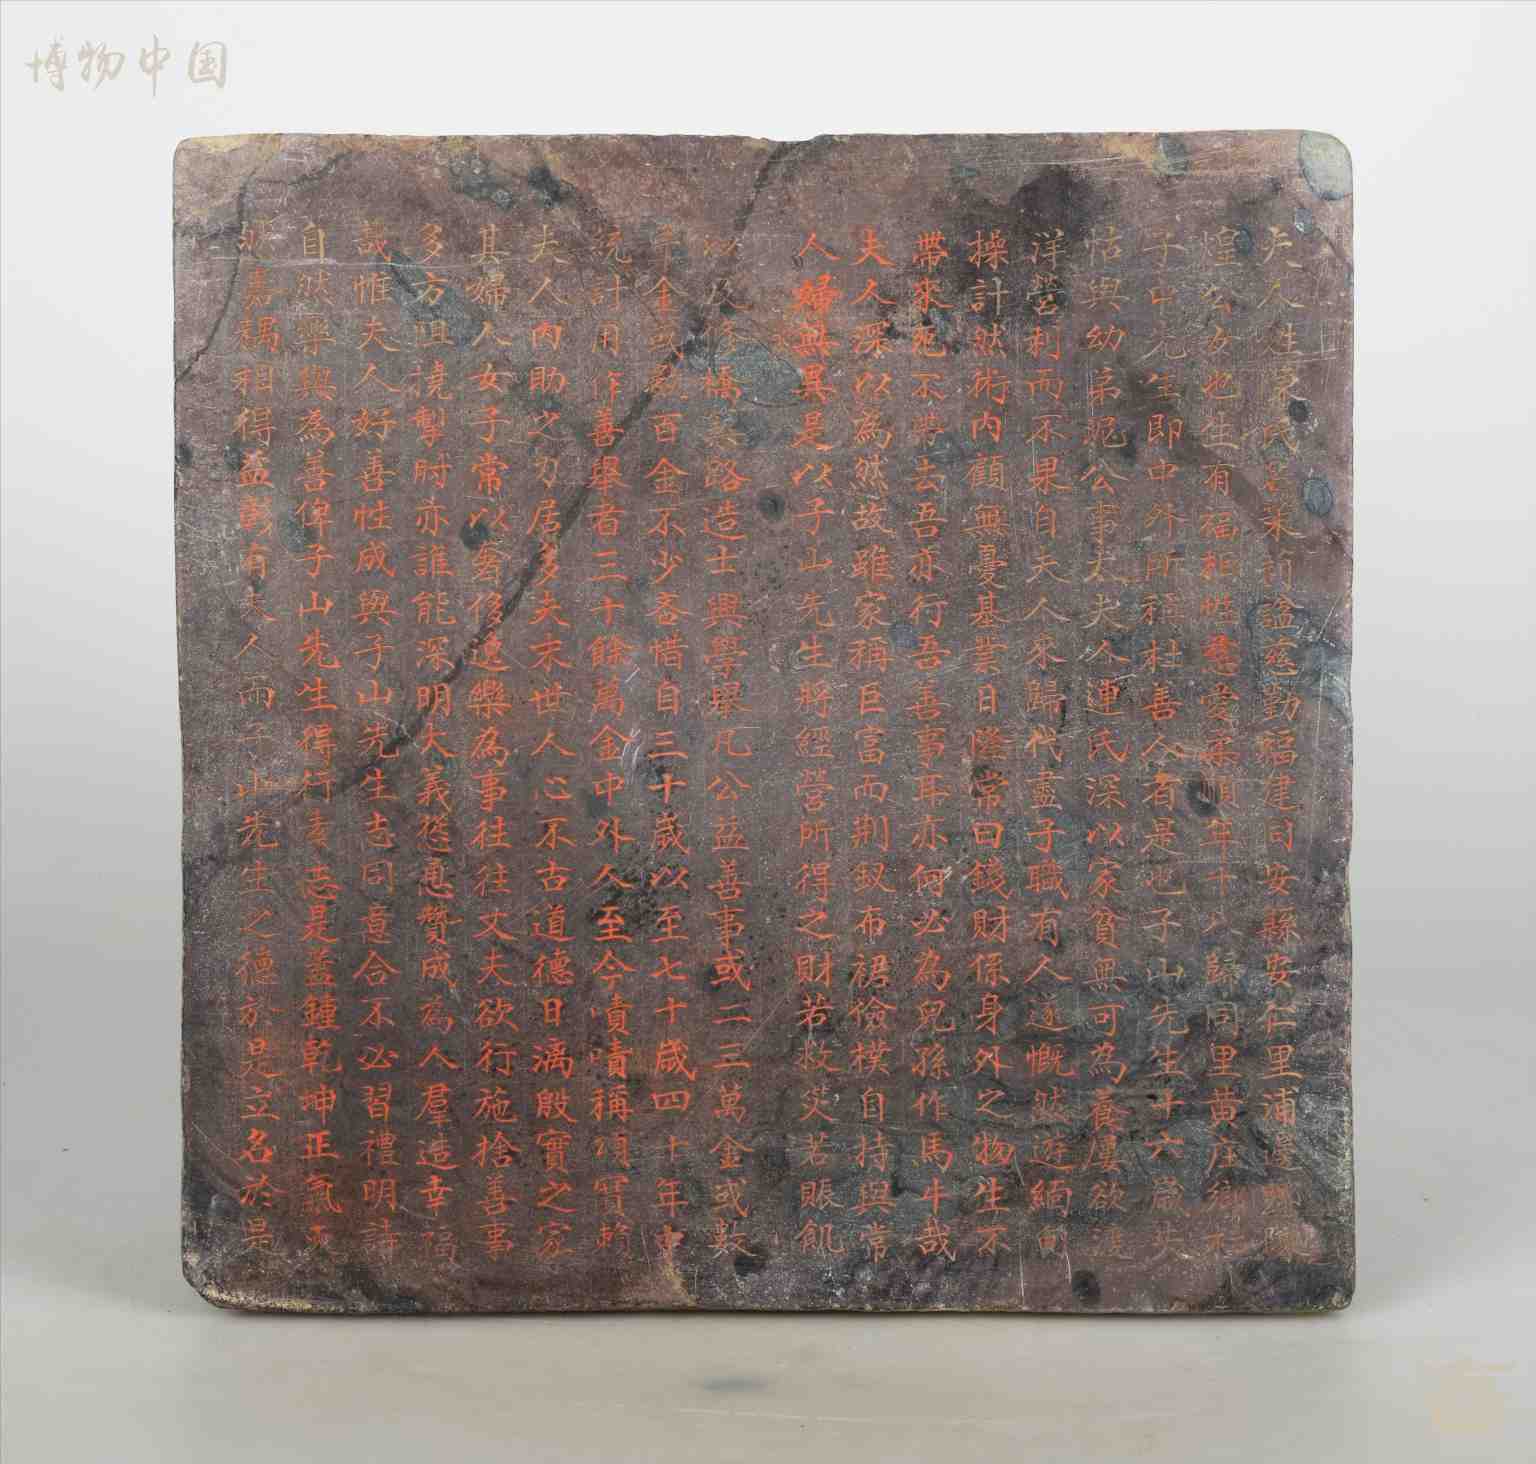 博物中国
夫人姓家氏諱采前諡慈勤福建同安縣安仁里浦邊
惶公女也生有福相性慈愛柔順年十八歸同里黃庄鄉杜
子山先生即中外所稱杜善人者是也子山先生十六歲失
怙與幼弟泥公事太夫人連氏深以家貧無可為養屢欲渡
洋營利而不果自夫人來歸代盡子職有人遂慨然遊緬甸
操計然術內顧無憂基業日隆常曰錢財係身外之物生不
帶來死不帶去吾亦行吾善事耳亦何必為兒孫作馬牛哉
夫人深以為然故雖家稱巨富而荊釵布裙儉樸自持與常
人婦無異是以子山先生將經營所得之財若救災若賑飢
以及修橋築路造士興學舉凡公益善事或二三萬金或數
千金或數百金不少吝惜自三十歲以至七十歲四十年中
統計用作善舉者三十餘萬金中外人至今嘖嘖稱頌實賴
夫人內助之力居多夫末世人心不古道德日漓殷實之家
其婦人女子常以奢侈逸樂為事往往丈夫欲行施捨善事
多方阻撓掣肘亦誰能深明大義慫恿贊成為人羣造幸福
哉惟夫人好善性成與子山先生志同意合不必習禮明詩
自然樂與為善俾子山先生得行素志是蓋鍾乾坤正氣天
嘉耦相得益彰有夫人而子山先生之德於是立名於是